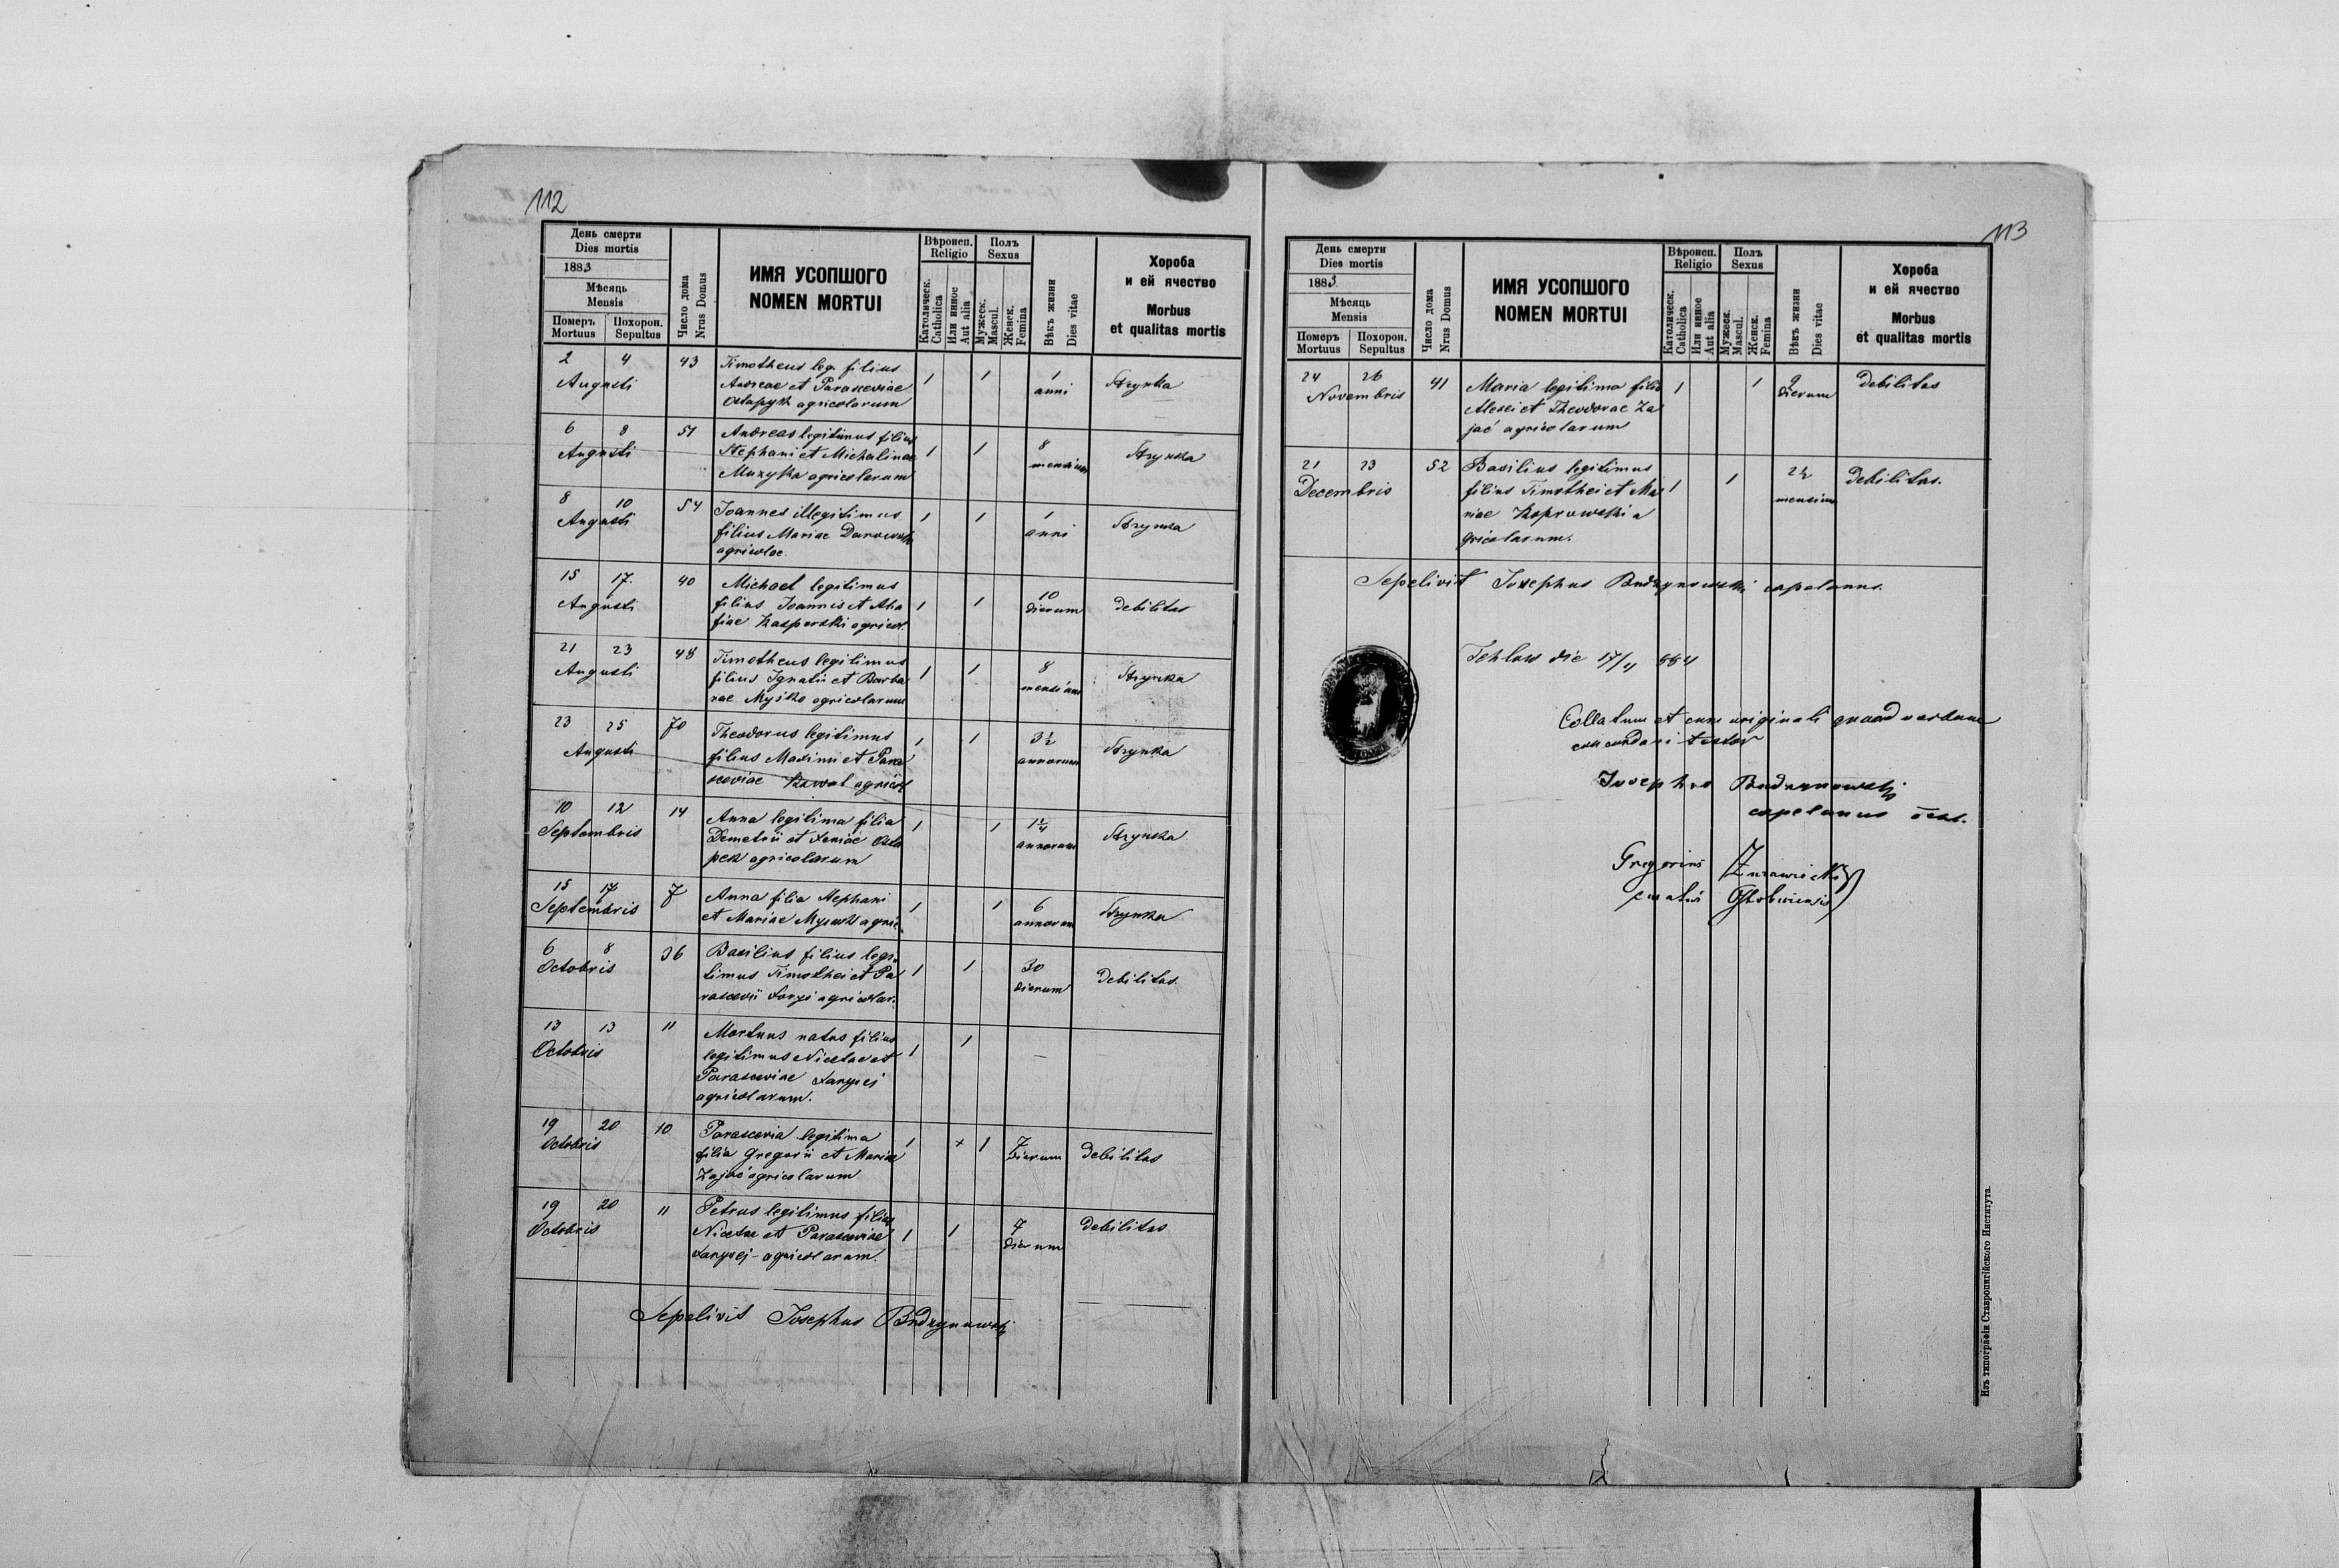 112
День смерти
Dies mortis
1883
Мѣсяць
Mensis
Померъ
Mortuus
Похорон.
Sepultus
Число дома
Nrus Domus
ИМЯ УСОПШОГО
NOMEN MORTUI
Вѣроисп.
Religio
Католическ.
Catholica
Или инное
Aut alia
Полъ
Sexus
Мужеск.
Mascul.
Женск.
Femina
Вѣкъ жизни
Dies vitae
Хороба
и ей ячество
Morbus
et qualitas mortis
2 4 43 Timotheus leg. filius
Augusti Andreae et Parasceviae 1 1 1 anni
agricolarum
6 8 51 Andreas legitimus filius
Augusti Stephani et Michalinae 1 1 8 mensium
Muzyka agricolarum
8 10 54 Joannes illegitimus
Augusti filius Mariae 1 1 1 anni
agricolae
15 17. 40 Michael legitimus
Augusti filius Joannis et Aha 1 1 10 dierum debilitas
fiae Kasperski agricol.
21 23 48 Timotheus legitimus
Augusti filius Ignatii et Barba 1 1 8 mensium
rae agricolarum
23 25 70 Theodorus legitimus
Augusti filius Maximi et Para 1 1 3½ annorum
sceviae Kowal agricol
10 12 14 Anna legitima filia
Septembris Demetrii et Xeniae Osta 1 1 annorum
agricolarum
15 17 7 Anna filia Stephani
Septembris et Mariae agric. 1 1 6 annorum
6 8 36 Basilius filius legi-
Octobris timus Timothei et Pa 1 1 30 dierum Debilitas.
rascevii agricolar.
13 13 11 Mortuus natus filius
Octobris legitimus Nicetae et 1 1 —
Parasceviae
agricolarum.
19 20 10 Parascevia legitima
Octobris filia Gregorii et Mariae 1 + 1 7 dierum debilitas
Zajać agricolarum
19 20 11 Petrus legitimus filius
Octobris Nicetae et Parasceviae 1 1 7 dierum debilitas
agricolarum.
Sepelivit Josephus Budzynowski
113
День смерти
Dies mortis
1883.
Мѣсяць
Mensis
Померъ
Mortuus
Похорон.
Sepultus
Число дома
Nrus Domus
ИМЯ УСОПШОГО
NOMEN MORTUI
Вѣроисп.
Religio
Католическ.
Catholica
Или инное
Aut alia
Полъ
Sexus
Мужеск.
Mascul.
Женск.
Femina
Вѣкъ жизни
Dies vitae
Хороба
и ей ячество
Morbus
et qualitas mortis
24 26 41 Maria legitima filia
Novembris Alexei et Theodorae Za 1 1 9 dierum debilitas
jać agricolarum
21 23 52 Basilius legitimus
Decembris filius Timothei et Ma 1 1 2½ mensium Debilitas.
riae Koprowski a
gricolarum.
Sepelivit Josephus Budzynowski capelanus.
Tehlow die 17/4 884
Collatum et cum originali quoad verbum
concordari testor
Josephus Budzynowski
capelanus
Gregorius Żurawiecki
Изъ типографіи Ставропигійского Института.